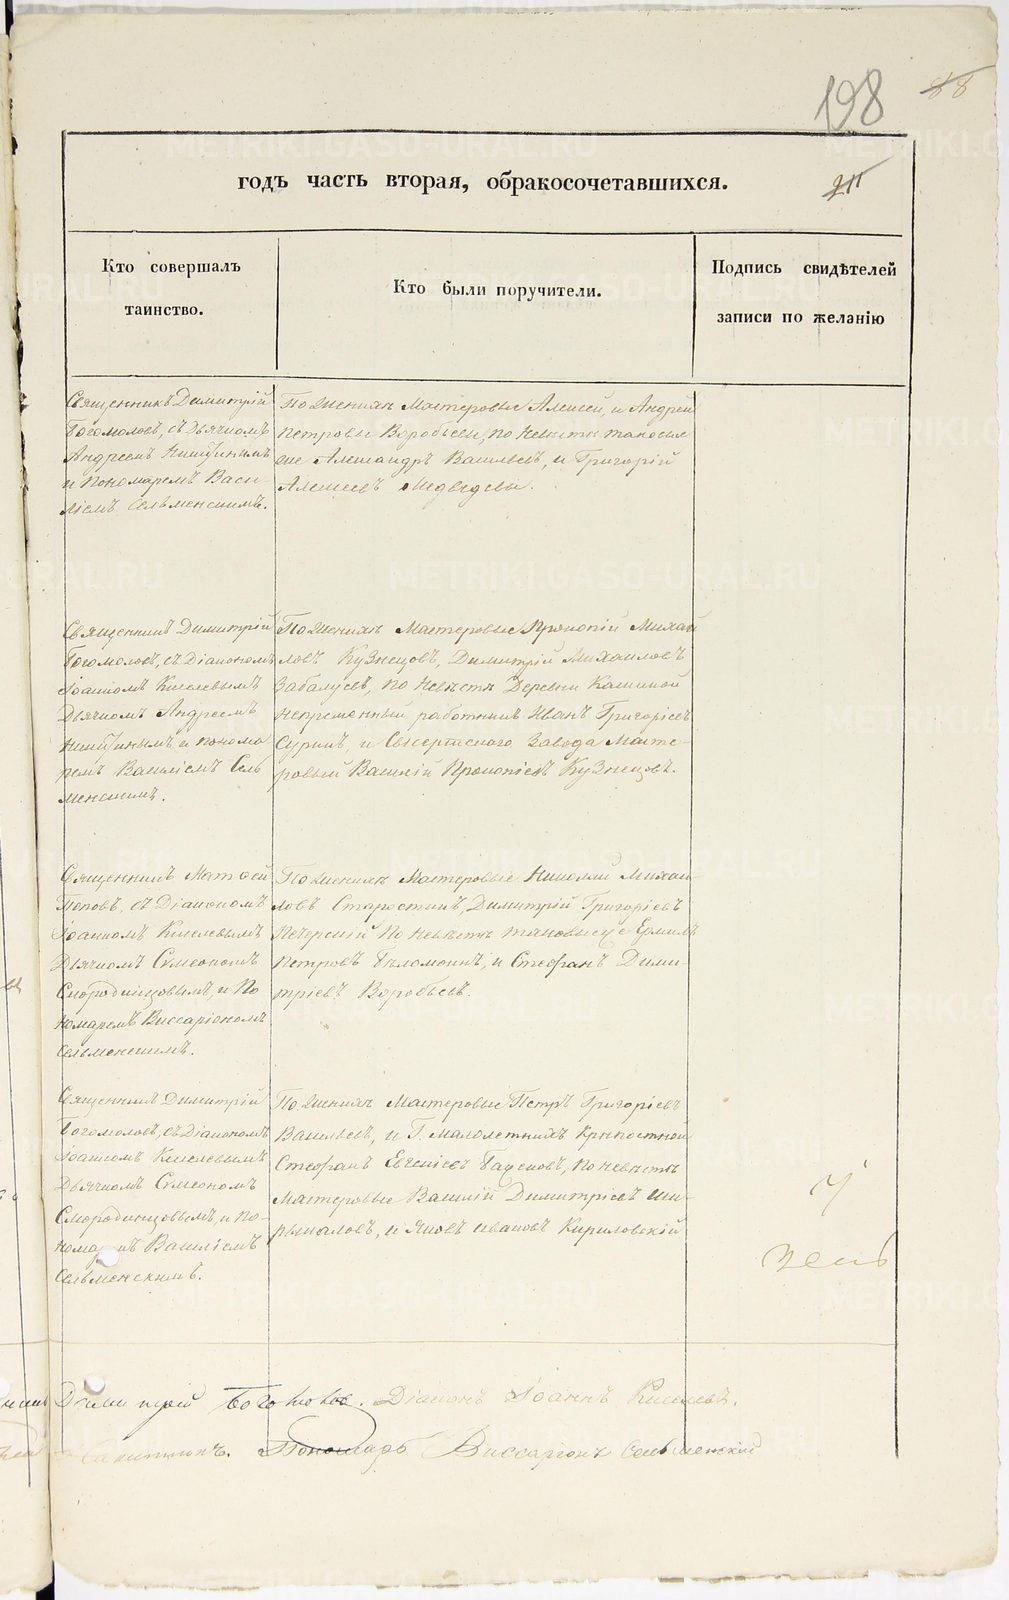 198 88
годъ часть вторая, обракосочетавшихся.
211
Кто совершалъ
таинство.
Кто были поручители.
Подпись свидѣтелей
записи по желанію
Священникъ Димитрій
Богомоловъ, съ Дьячкомъ
Андреемъ
и Пономаремъ Васи-
ліемъ Сельменскимъ.
По Женихѣ Мастеровые Алексѣй, и Андрей
Петровы Воробьевы, по Невѣстѣ таковые
же Александръ Васильевъ, и Григорій
Алексѣевъ Медведевы.
Священникъ Димитрій
Богомоловъ, съ Діакономъ
Іоанномъ Киселевымъ
Дьячкомъ Андреемъ
и понома
ремъ Василіемъ Сель
менскимъ.
По Женихѣ Мастеровые Прокопій Михай
ловъ Кузнецовъ, Димитрій Михаиловъ
Забалуевъ, по Невѣстѣ Деревни Кашиной
Непременный работникъ Иванъ Григорьевъ
Суринъ, и Сысертского Завода Масте-
ровый Василій Прокопіевъ Кузнецовъ.
Священникъ Матѳей
Поповъ, съ Діакономъ
Іоанномъ Киселевымъ
Дьячкомъ Сѵмеономъ
Смородинцовымъ, и По
номаремъ Виссаріономъ
Сельменскимъ.
По Женихѣ Мастеровые Николай Михаи-
ловъ Старостинъ, Димитрій Григоріевъ
Печерскій по Невѣстѣ таковые же Ермилъ
Петровъ и Стефанъ Дими-
тріевъ Воробьевъ.
Священникъ Димитрій
Богомоловъ, съ Діакономъ
Іоанномъ Киселевымъ
Дьячкомъ Сѵмеономъ
Смородинцовымъ, и По-
номаремъ Василіемъ
Сельменскимъ.
По Женихѣ Мастеровые Петръ Григоріевъ
Васильевъ, и Г. Малолетнихъ Крѣпостной
Стефанъ Евгеніевъ по невѣстѣ
Мастеровые Василій Димитріевъ Ши-
рыкаловъ, и Яковъ Ивановъ Кириловскій
Димитрій Богомолов. Діаконъ Іоаннъ Киселевъ.
Пономарь Виссаріонъ Сельменскій
METRIKI.GASO-URAL.RU